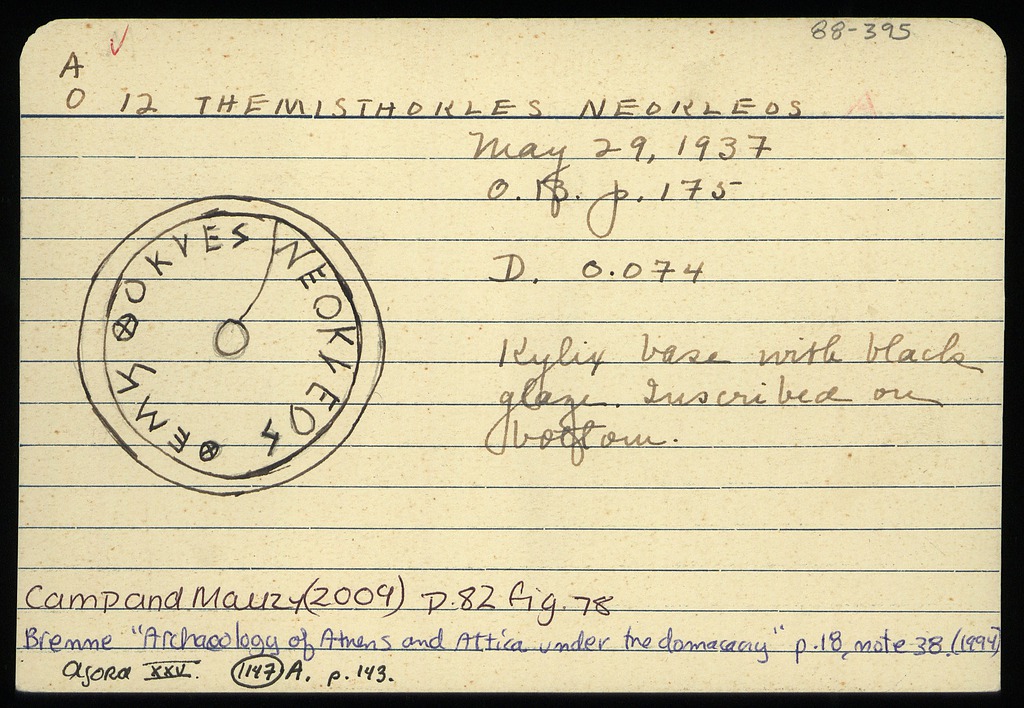 88-395
A
O 12 THEMISTHOKLES NEOKLEOS
May 29, 1937
O.B. p. 175
D. 0.074
Kylix base with black
glaze. Inscribed on
bottom.
ΝEOKVEOS
⊗EMIS⊗OKVES
Camp and Mauzy (2009) p.82 fig. 78
Brenne "Archaeology of Athens and Attica under the domacracy" p.18, note 38. (1994)
Agora XXV. 1147 A. p. 143.